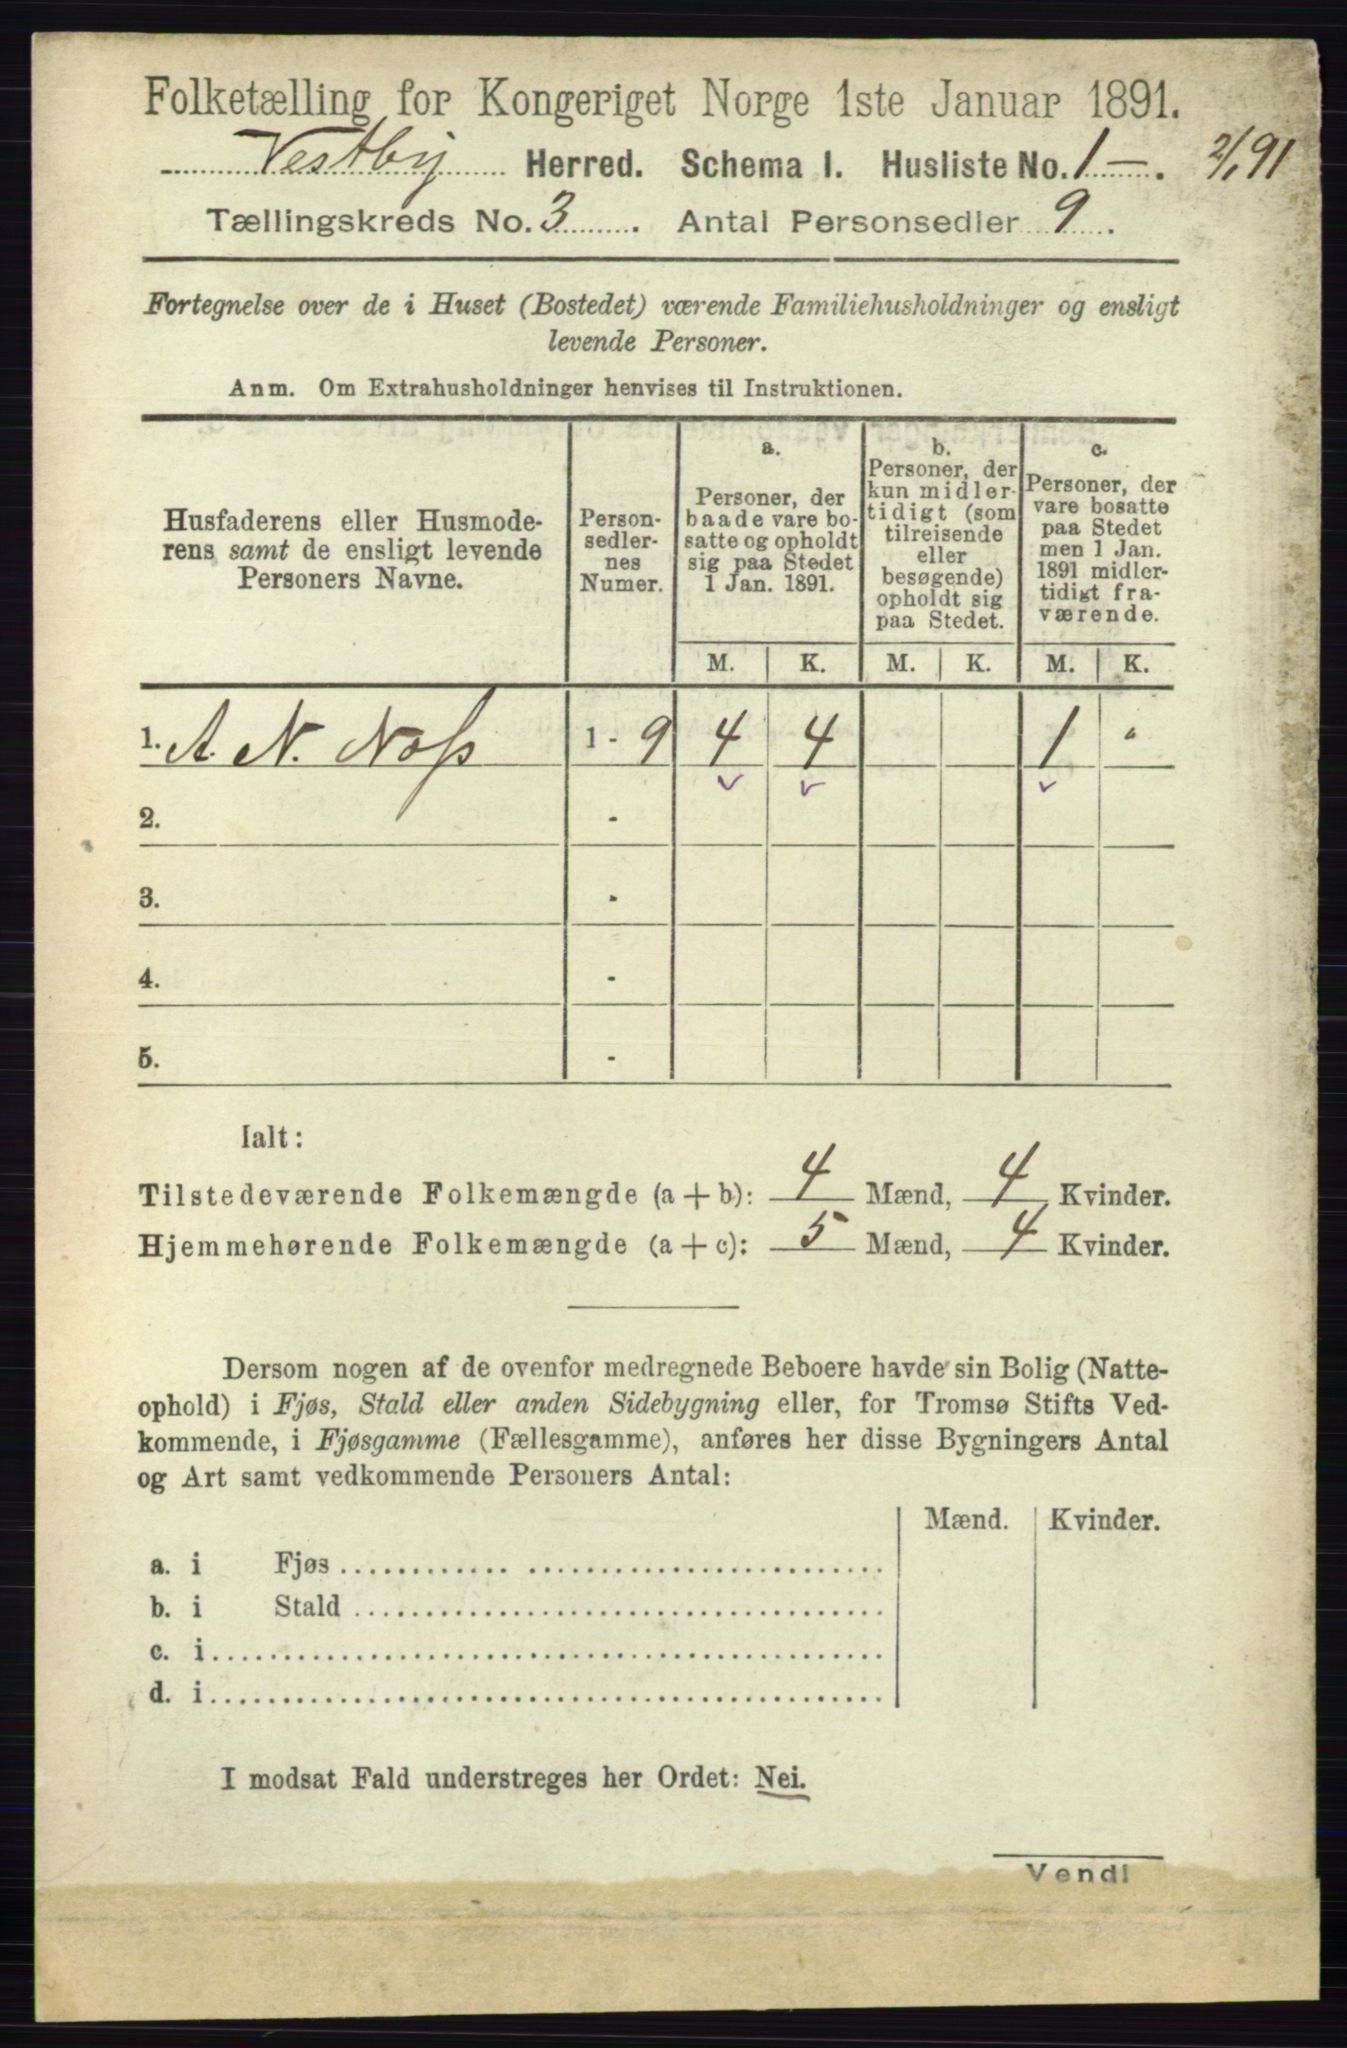 Folketælling for Kongeriget Norge 1ste Januar 1891.
Vestby Herred. Schema I. Husliste No. 1 — . 2/1 91
Tællingskreds No. 3 . Antal Personsedler 9 .
Fortegnelse over de i Huset (Bostedet) værende Familiehusholdninger og ensligt
levende Personer.
Anm. Om Extrahusholdninger henvises til Instruktionen.
Husfaderens eller Husmode-
rens samt de ensligt levende
Personers Navne.
Person-
sedler-
nes
Numer.
a.
Personer, der
baade vare bo-
satte og opholdt
sig paa Stedet
1 Jan. 1891.
b.
Personer, der
kun midler-
tidigt (som
tilreisende
eller
besøgende)
opholdt sig
paa Stedet.
c.
Personer, der
vare bosatte
paa Stedet
men 1 Jan.
1891 midler-
tidigt fra-
værende.
M. K. M. K. M. K.
1. A. N. Noss 1 - 9 4 4 1 "
2. -
3. -
4. -
5. -
Ialt:
Tilstedeværende Folkemængde (a + b): 4 Mænd, 4 Kvinder.
Hjemmehørende Folkemængde (a + c): 5 Mænd, 4 Kvinder.
Dersom nogen af de ovenfor medregnede Beboere havde sin Bolig (Natte-
ophold) i Fjøs, Stald eller anden Sidebygning eller, for Tromsø Stifts Ved-
kommende, i Fjøsgamme (Fællesgamme), anføres her disse Bygningers Antal
og Art samt vedkommende Personers Antal:
Mænd. Kvinder.
a. i Fjøs
b. i Stald
c. i
d. i
I modsat Fald understreges her Ordet: Nei.
Vend!